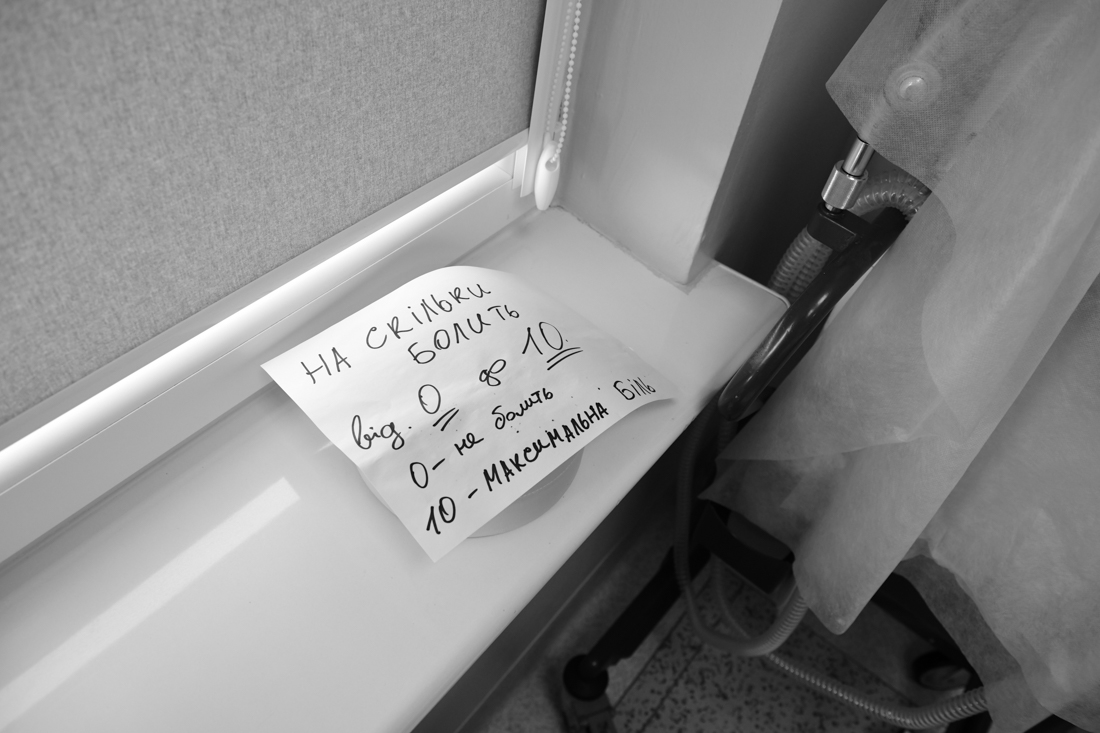 НА СКІЛЬКИ
БОЛИТЬ
від. 0 до 10.
0 – не болить
10 – МАКСИМАЛЬНА БІЛЬ